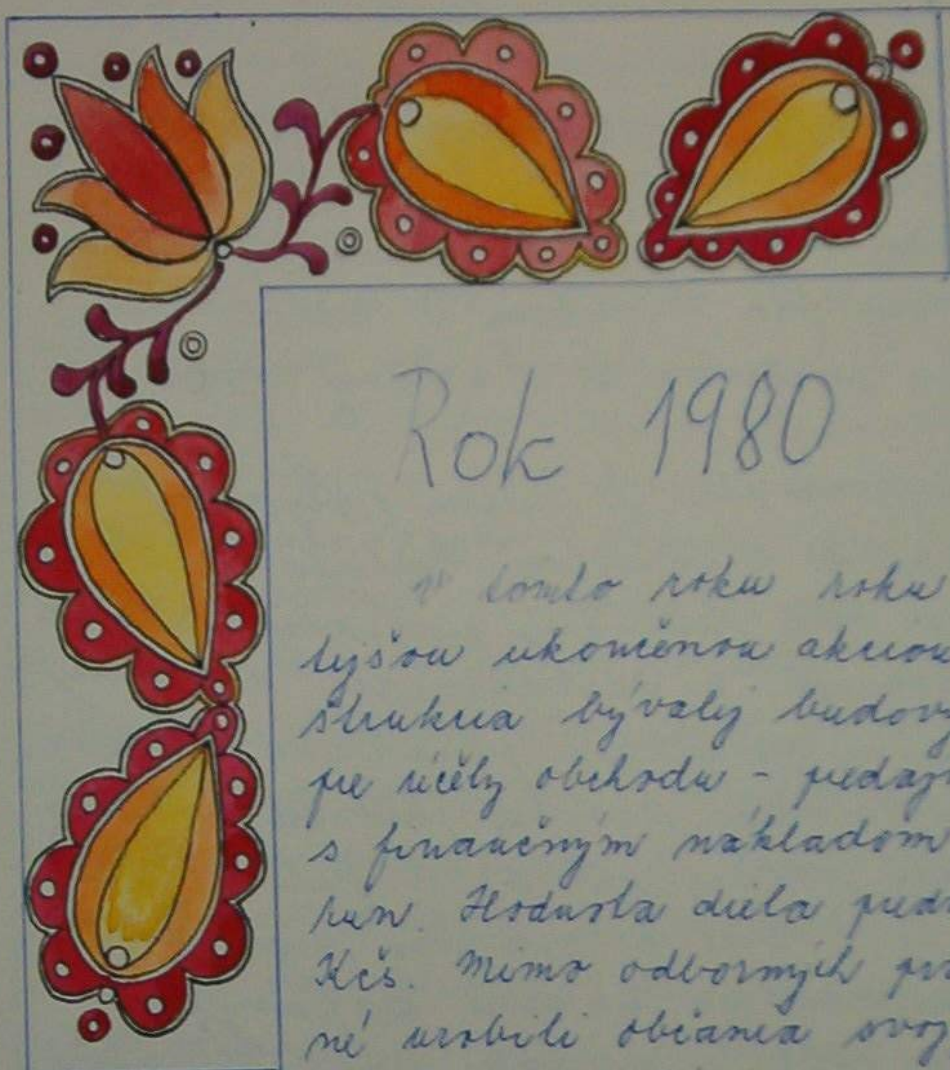 Rok 1980
v tomto roku roku
tejšou ukončenou akciou
štrukcia bývalej budovy
pre účely obchodu - predaj
s finančným nákladom
rún. Hodnota diela pred
Kčs. Mimo odborných pr
né urobili občania svoj